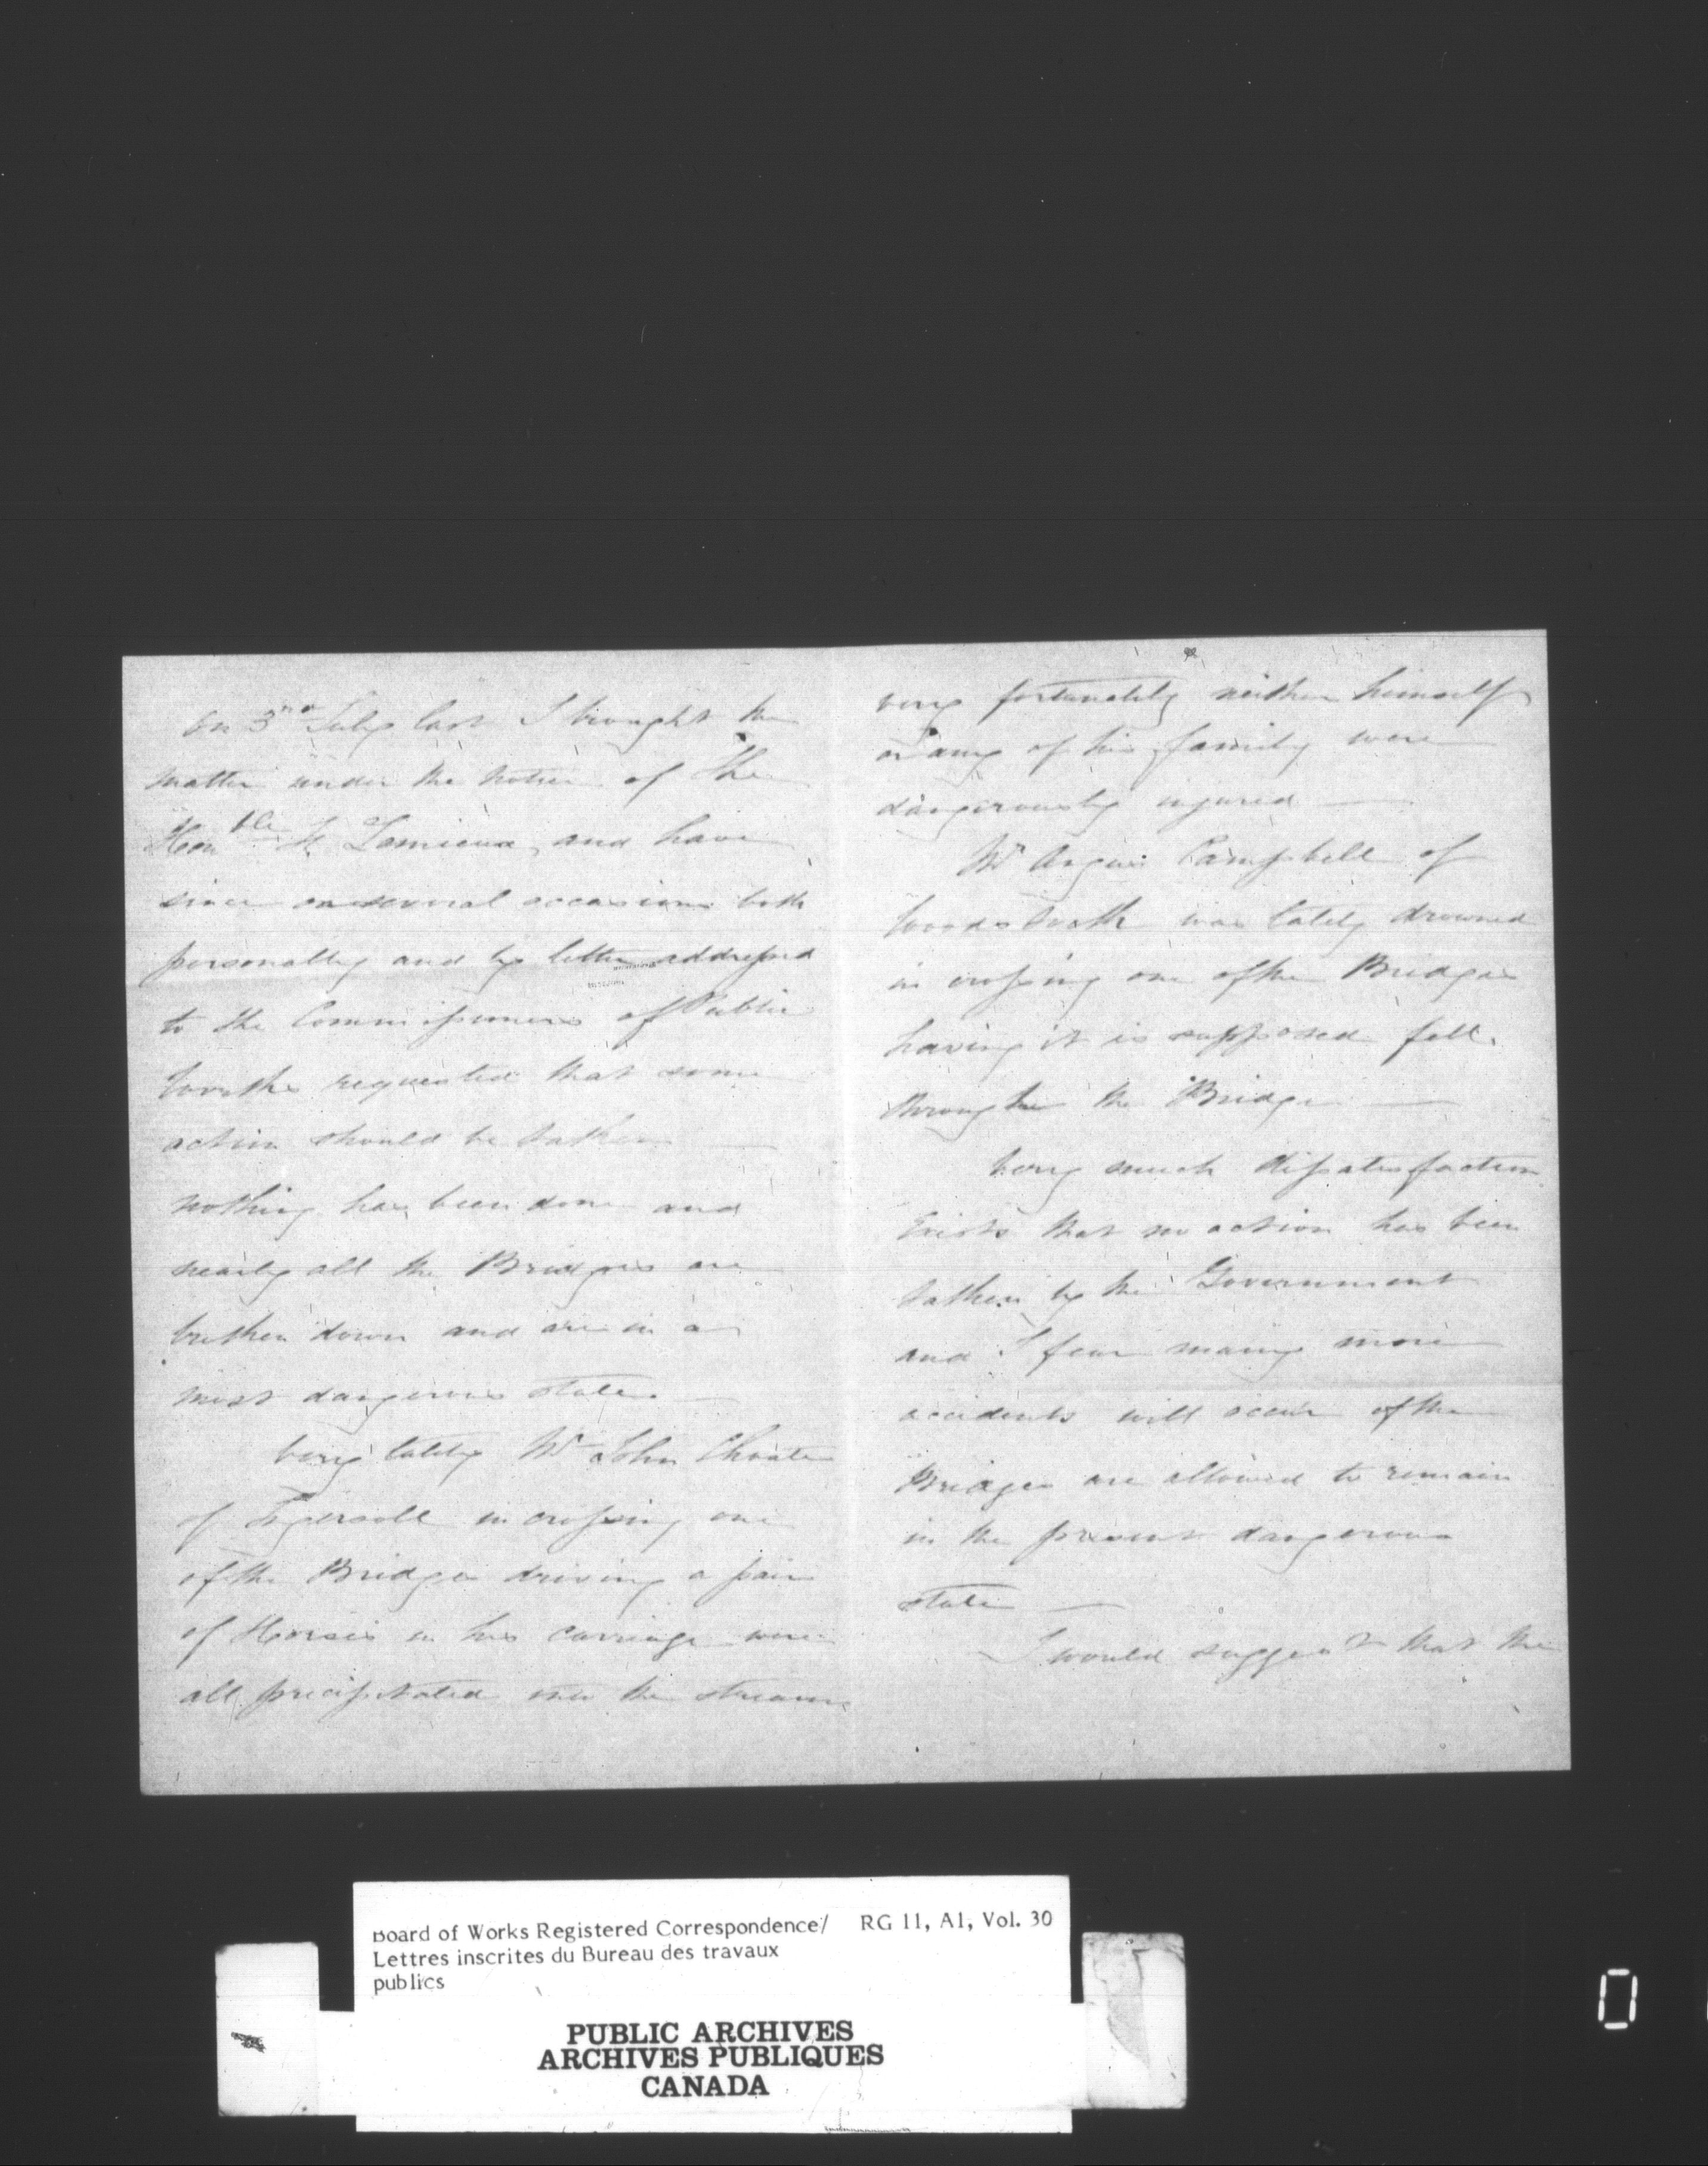 On 3rd July last I brought the
matter under the notice of The
Honble F. Lemieux, and have
since on several occasions both
personally and by letter addressed
to the Commissioners of Public
Works requested that some
action should be taken
nothing has been done and
nearly all the Bridges are
broken down and are in a
most dangerous state.
Very lately Mr John Choate
of Ingersoll in crossing one
of the Bridges driving a pair
of Horses in his carriage were
all precipitated into the stream
very fortunately neither himself
or any of his family were
dangerously injured
Mr Angus Campbell of
Woodstock was lately drowned
in crossing one of the Bridges
having it is supposed fell
through the Bridge
Very much dissatisfaction
Exists that no action has been
taken by the Government
and I fear many more
accidents will occur if the
Bridges are allowed to remain
in the present dangerous
state
I would suggest that the
Board of Works Registered Correspondence/ RG 11, A1, Vol. 30
Lettres inscrites du Bureau des travaux
publics
PUBLIC ARCHIVES
ARCHIVES PUBLIQUES
CANADA
0